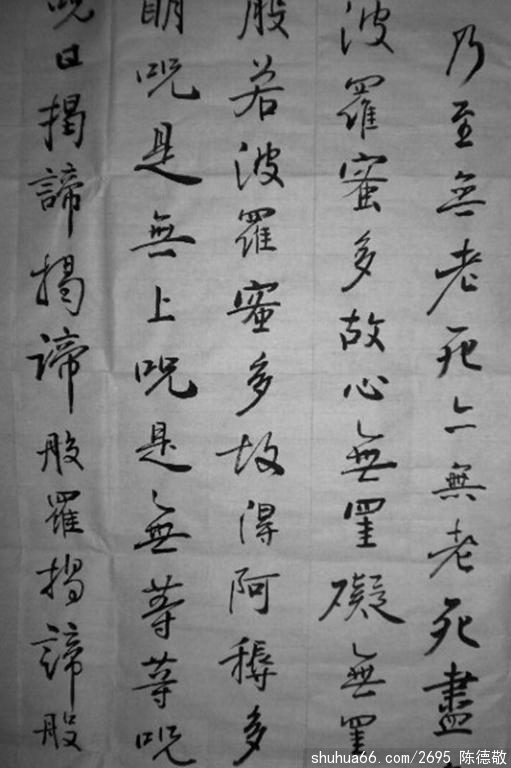 乃至無老死亦無老死盡
波羅蜜多故心無罣礙無罣
般若波羅蜜多故得阿耨多
明咒是無上咒是無等等咒
咒曰揭諦揭諦般羅揭諦般
shuhua66.com/2695 陈德敬